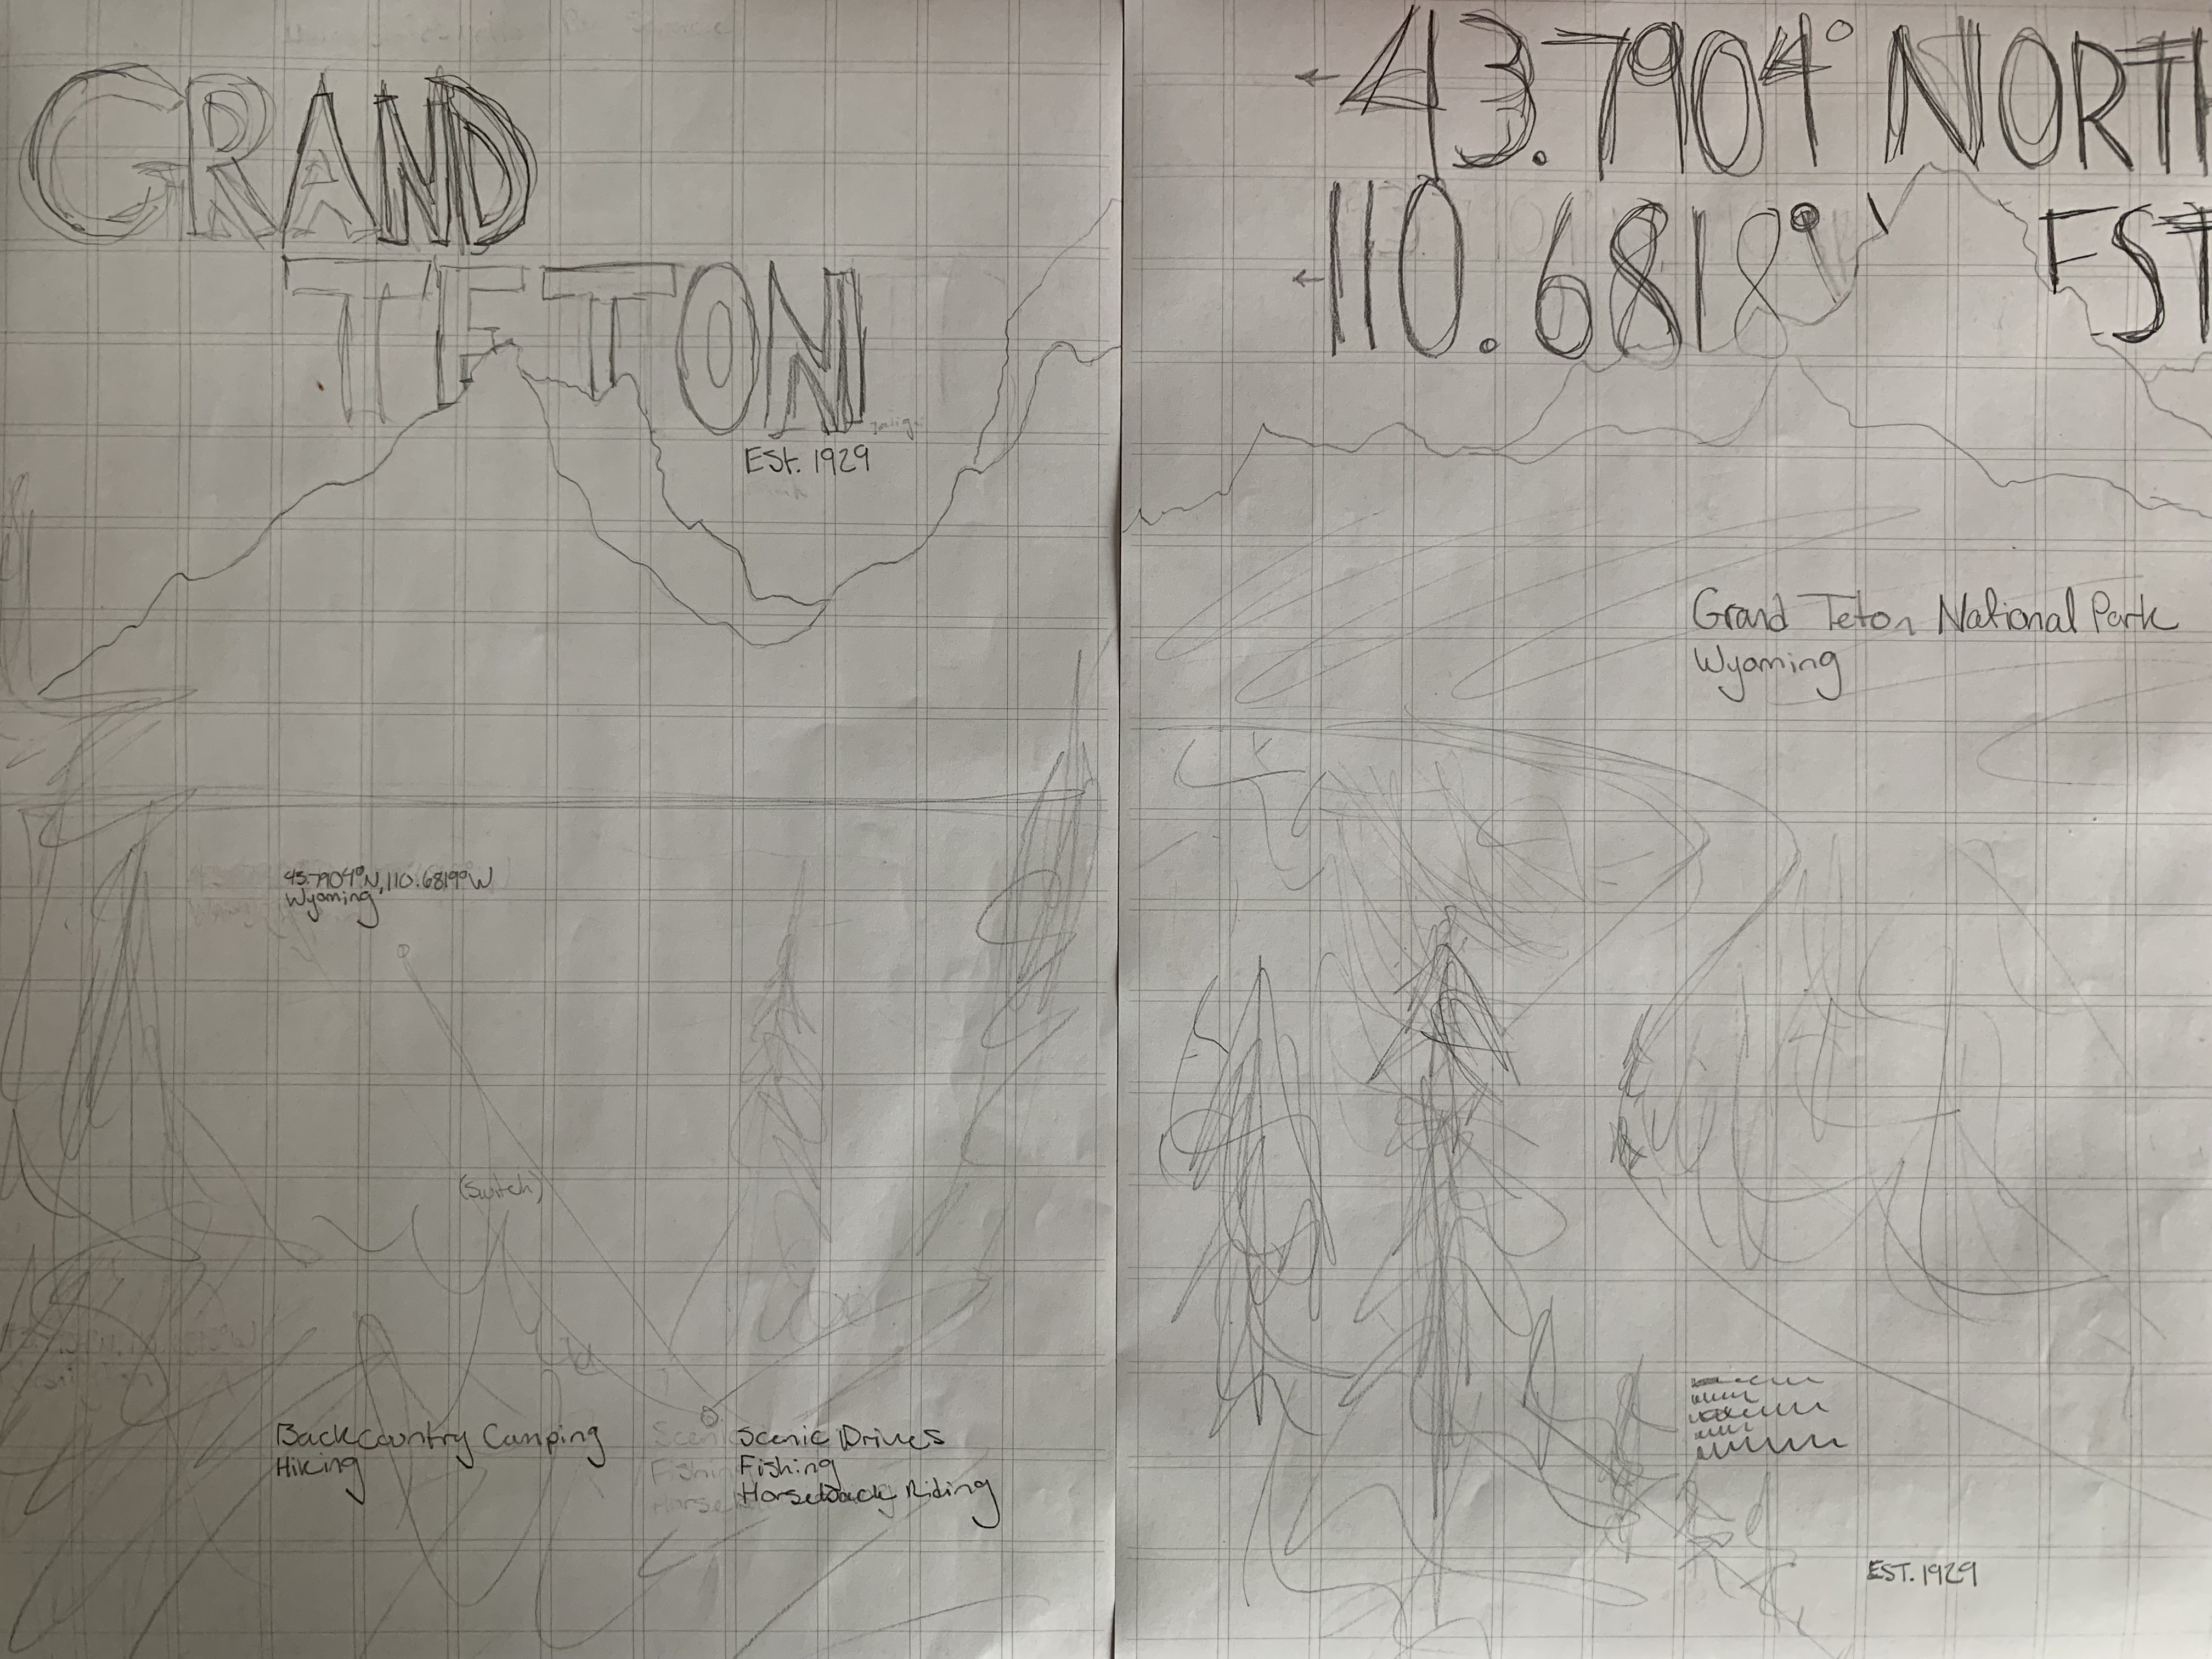 GRAND
TETON
Est. 1929
43.7904°N, 110.6819°W
Wyoming
(Switch)
Backcountry Camping
Hiking
Scenic Drives
Fishing
Horseback Riding
← 43.7904° NORTH
← 110.6818° EST
Grand Teton National Park
Wyoming
EST. 1929